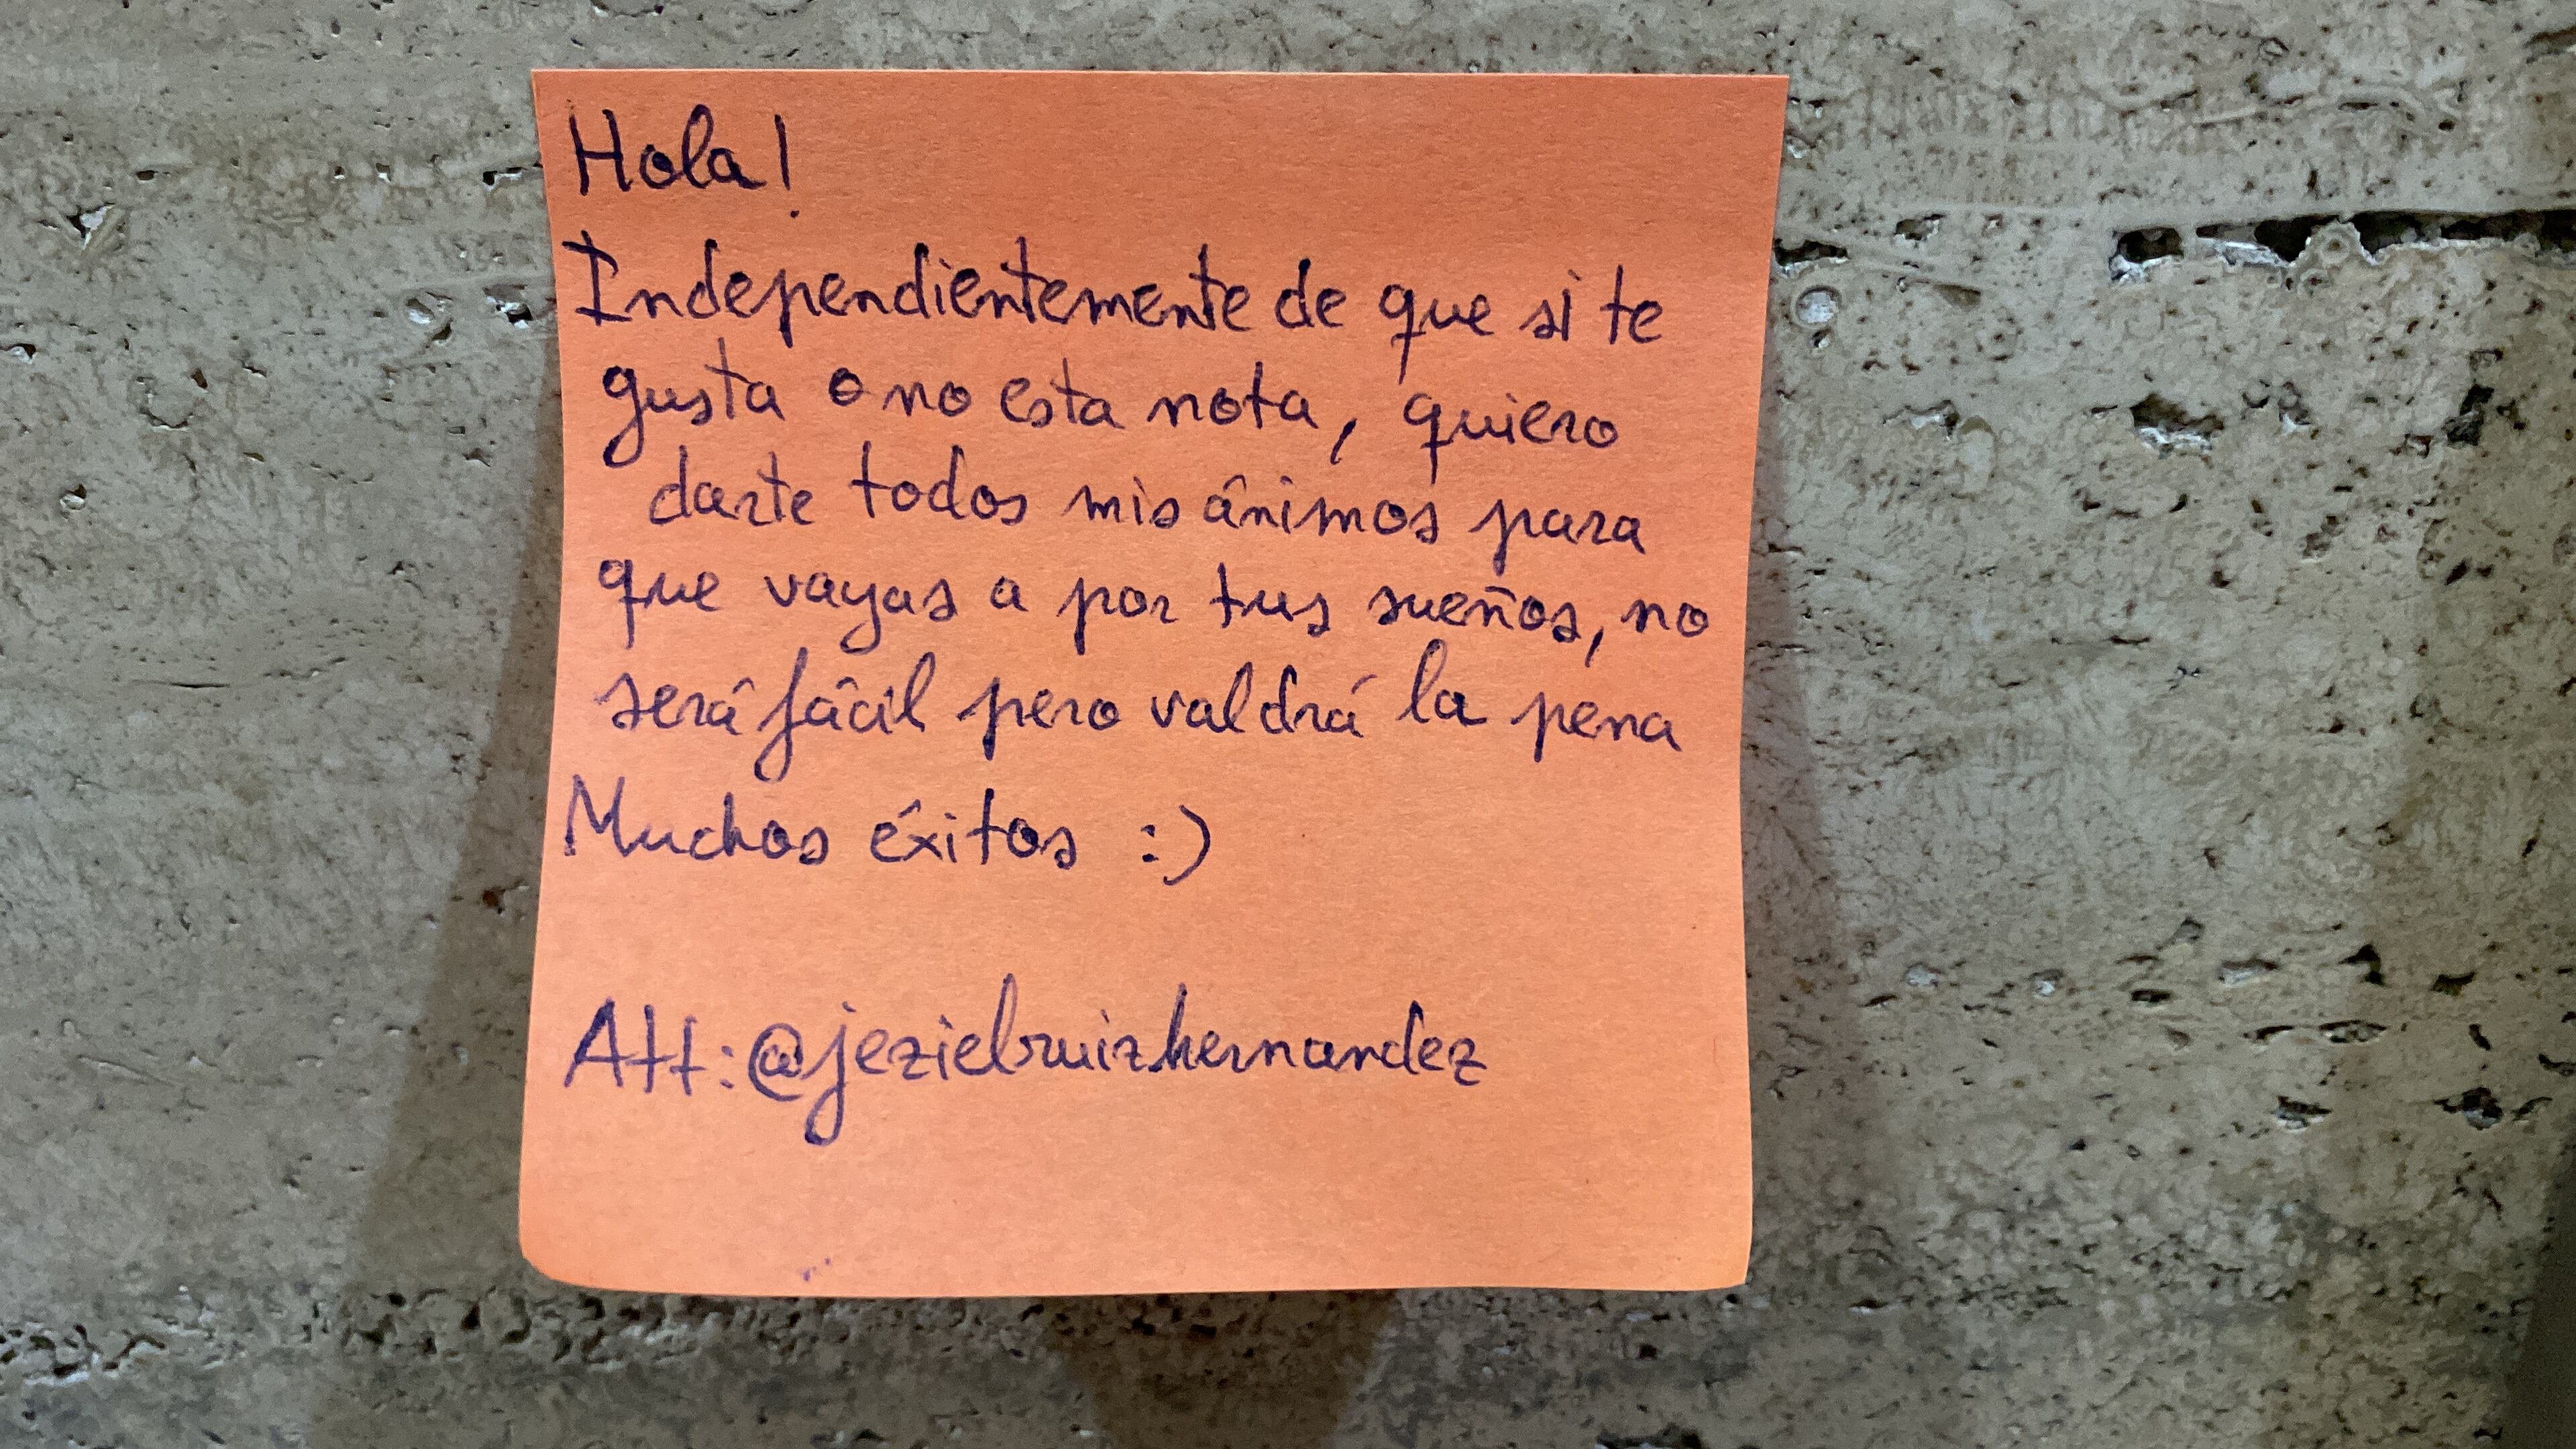 Hola!
Independientemente de que si te
gusta o no esta nota, quiero
darte todos mis ánimos para
que vayas a por tus sueños, no
será fácil pero valdrá la pena
Muchos éxitos :)
Att:@jezielruizhernandez